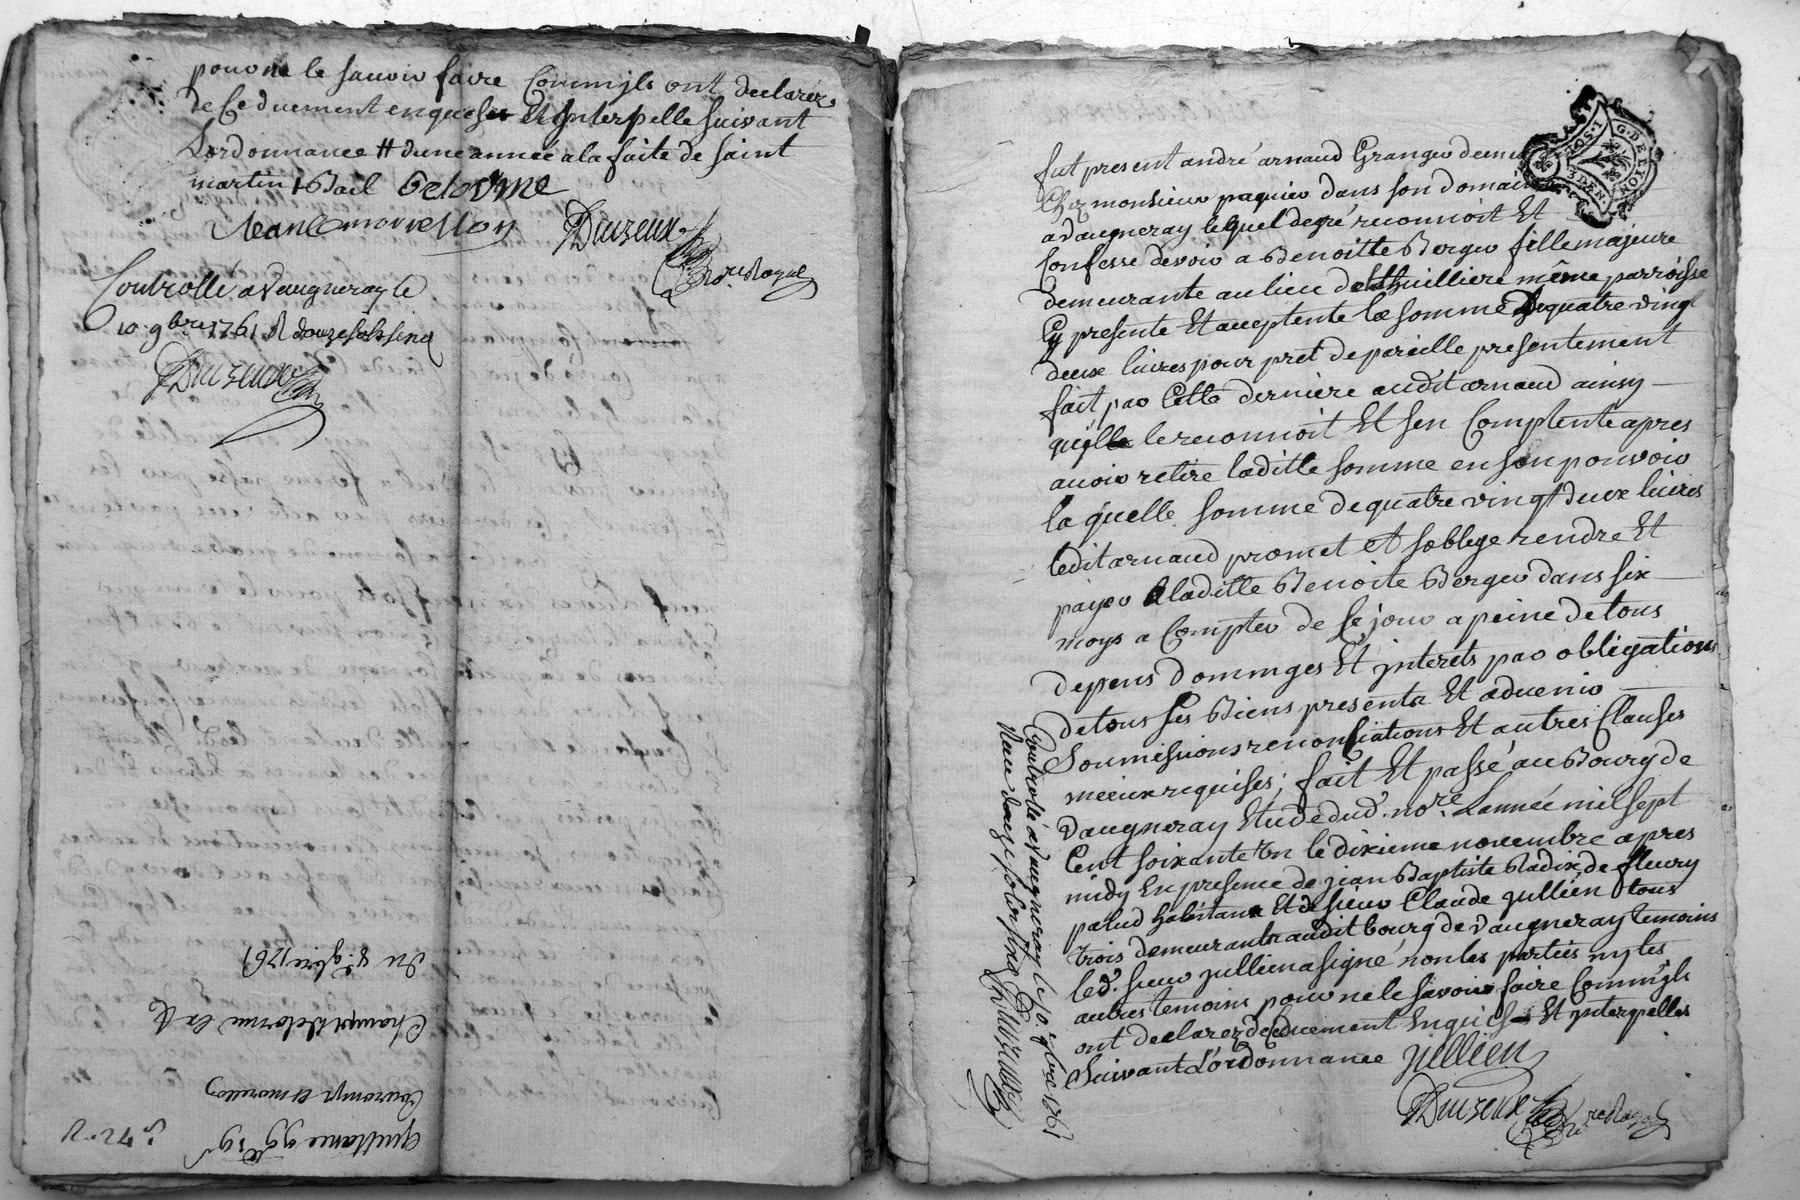 pour ne le sauoir faire Commyls ont declarez
de Ce duement enquesis Et Jnterpellé suivant
Lordonnance # dune année a la faite de saint
martin + Bail Delorme
Jean C morrellon Duzeux
no.re Royal
Controllé a Vaugneray le
10. 9bre 1761 R douze sols six
Duzeux
du 8. 9bre 1761
quittance 99# 19s
fut present andré arnaud Granger
Chez monsieur paquier dans son domaine
a Vaugneray lequel de gré reconnoit Et
Confesse devoir a Benoitte Berger fille majeure
demeurante au lieu de thuilliere même parroisse
Cy presente Et acceptente la somme de quatre vingt
deux liures pour pret de pareille presentement
fait par Cette derniere audit arnaud ainsy
qu'jl le reconnoit Et sen Comptente apres
auoir retiré laditte somme en son pouvoir
la quelle somme de quatre vingt deux liures
ledit arnaud promet Et soblige rendre Et
payer a laditte Benoite Berger dans six
moys a Compter de Ce jour a peine de tous
depens dommges Et jnterets par obligations
de tous ses Biens presents Et aduenir
Soumissions renonsiations Et autres Clauses
mieux requises; fait Et passé au Bourg de
Vaugneray Etude dud. no.re Lannée mil sept
Cent soixante un le dixieme novembre apres
midy En presence de jean Baptiste Radix, de fleury
palud habitans Et de sieur Claude jullien tous
trois demeurants audit bourg de Vaugneray temoins
led. sieur jullien a signé non les parties ny les
autres temoins pour ne le savoir faire Comm'jls
ont declarez de Ce duement Enquis Et jnterpellés
Suivant L'ordonnance jullien
Duzeux
no.re Royal
Controllé a Vaugneray le 10. 9bre 1761
Reçu douze sols six Duzeux